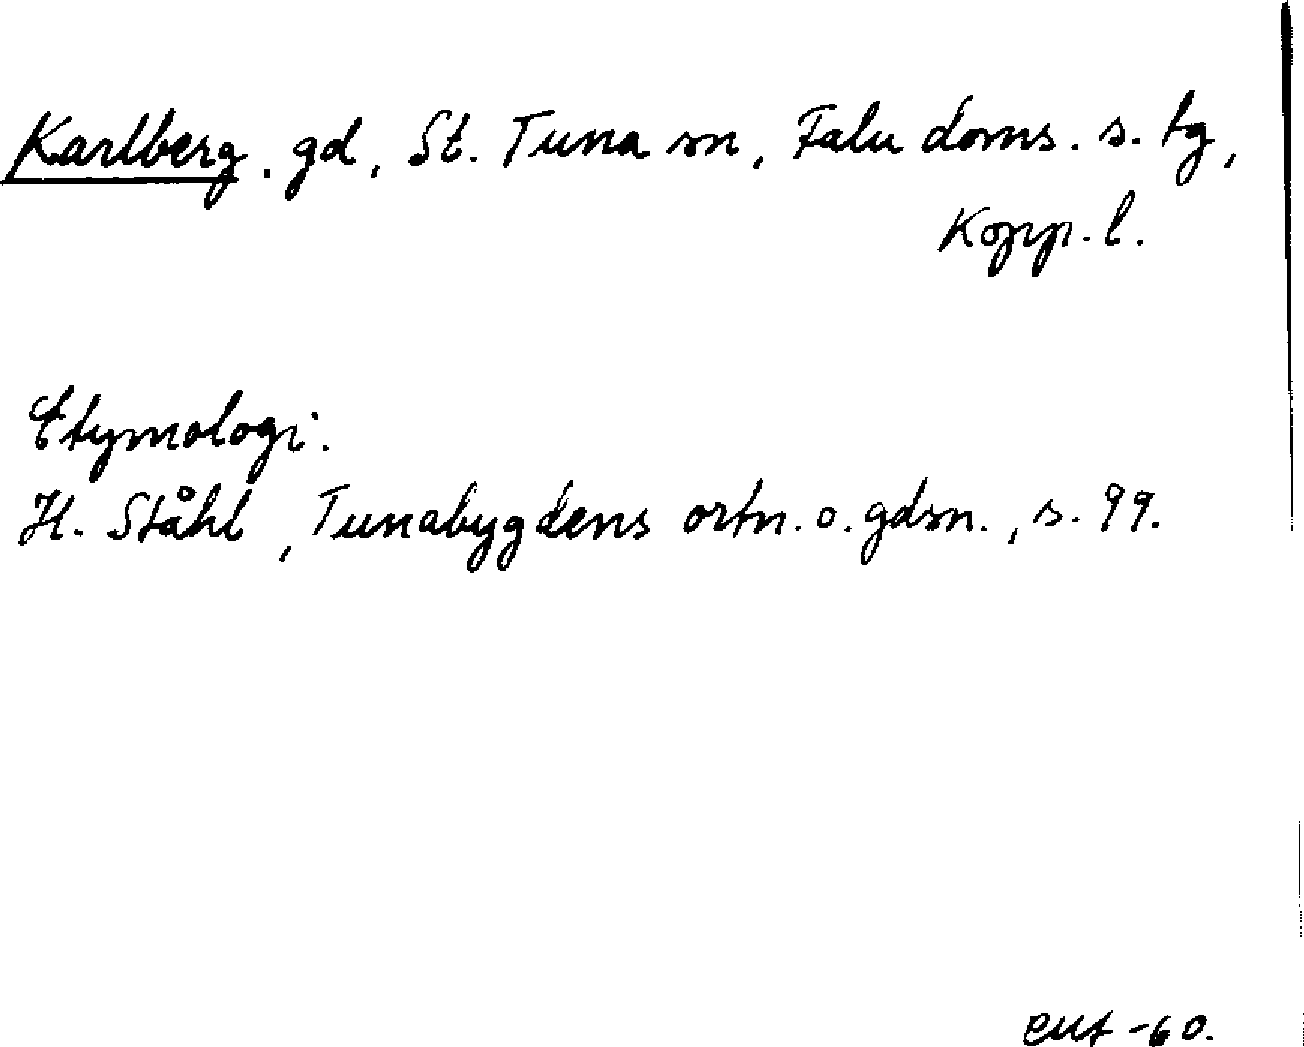 Karlberg, gd, St. Tuna sn, Falu doms. s. tg,
Kopp. l.
Etymologi.
H. Ståhl, Tunabygdens ortn. o. gdsn., s. 99.
-60.